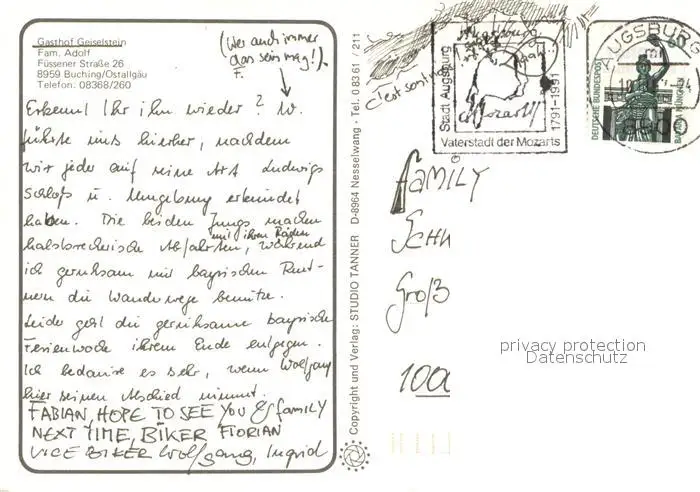 Gasthof Geiselstein
Fam. Adolf
Füssener Straße 26
8959 Buching/Ostallgäu
Telefon: 08368/260
(Wer auch immer
das sein mag!)
F.
Erkennt Ihr ihn wieder? W.
führte uns hierher, nachdem
wir jeder auf seine Art Ludwigs
Schloß u. Umgebung erkundet
haben. Die beiden Jungs machen
mit ihren Rädern
halsbrecherische Abfahrten, während
ich geruhsam mit bayrischen Rent-
nern die Wanderwege benutze.
Leider geht die geruhsame bayrische
Ferienwoche ihrem Ende entgegen.
Ich bedaure es sehr, wenn Wolfgang
hier seinen Abschied nimmt.
FABIAN, HOPE TO SEE YOU & family
NEXT TIME, BIKER FLORIAN
VICE BIKER Wolfgang, Ingrid
Copyright und Verlag: STUDIO TANNER D-8964 Nesselwang - Tel. 0 83 61 / 211
Stadt Augsburg
Mozart
1791-1991
Vaterstadt der Mozarts
AUGSBURG
8900
DEUTSCHE BUNDESPOST
BAVARIA MÜNCHEN
60
FAMILY
SCHU
Groß
100
privacy protection
Datenschutz